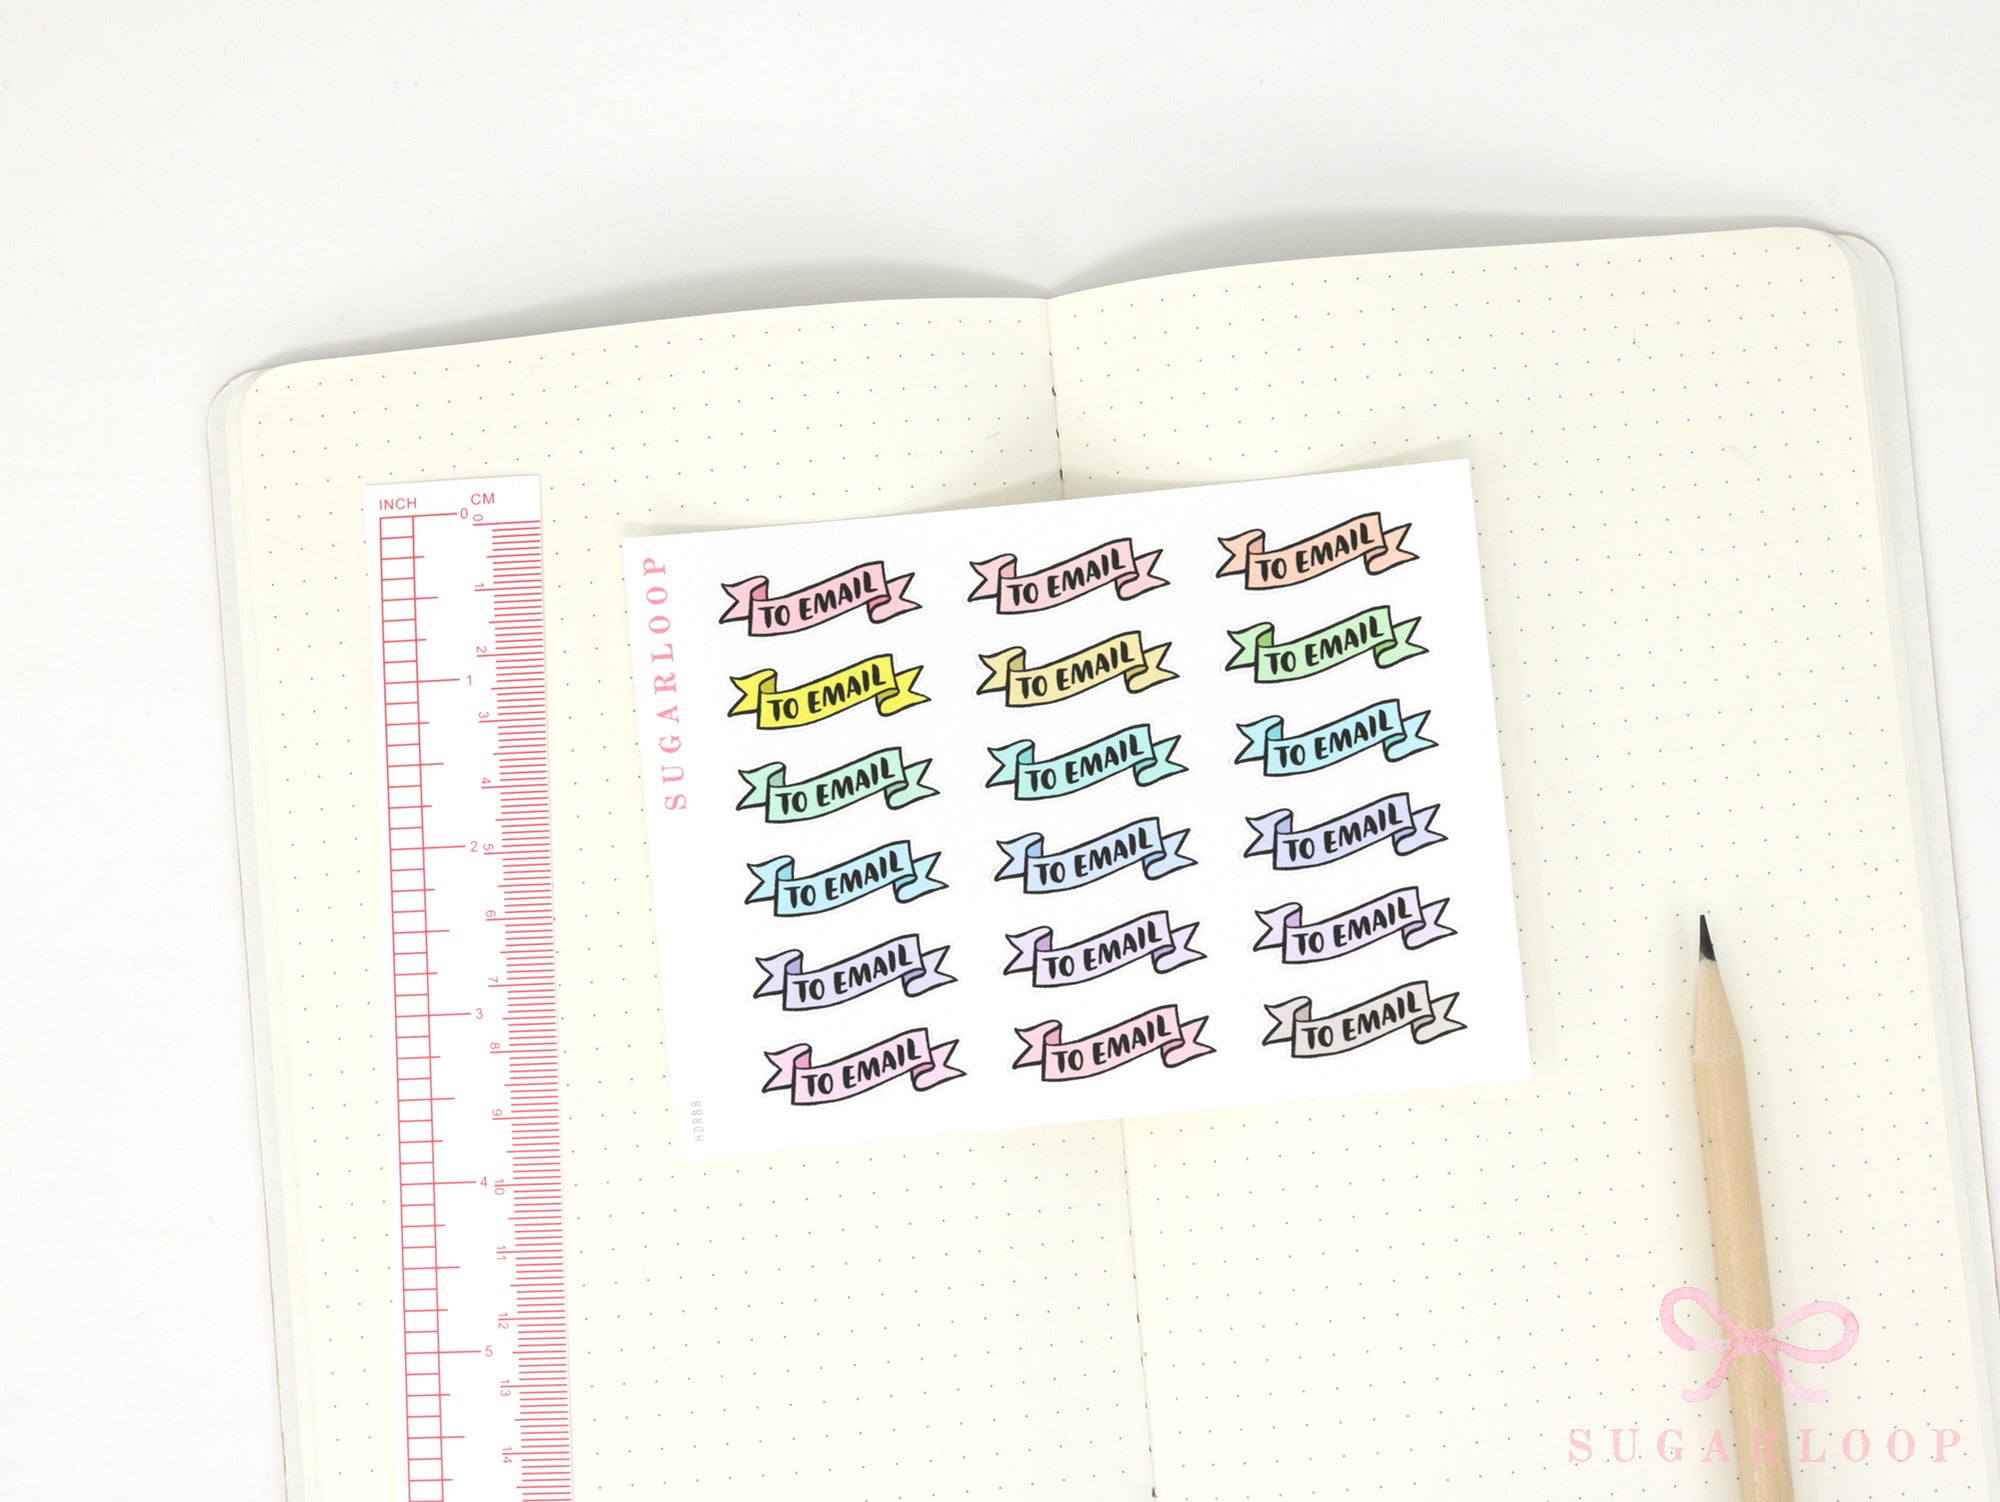 INCH CM
0 0
1
2
1
3
4
2 5
6
7
3
8
9
4 10
11
12
5
13
14
SUGARLOOP
TO EMAIL TO EMAIL TO EMAIL
TO EMAIL TO EMAIL TO EMAIL
TO EMAIL TO EMAIL TO EMAIL
TO EMAIL TO EMAIL TO EMAIL
TO EMAIL TO EMAIL TO EMAIL
TO EMAIL TO EMAIL TO EMAIL
HDR88
SUGARLOOP